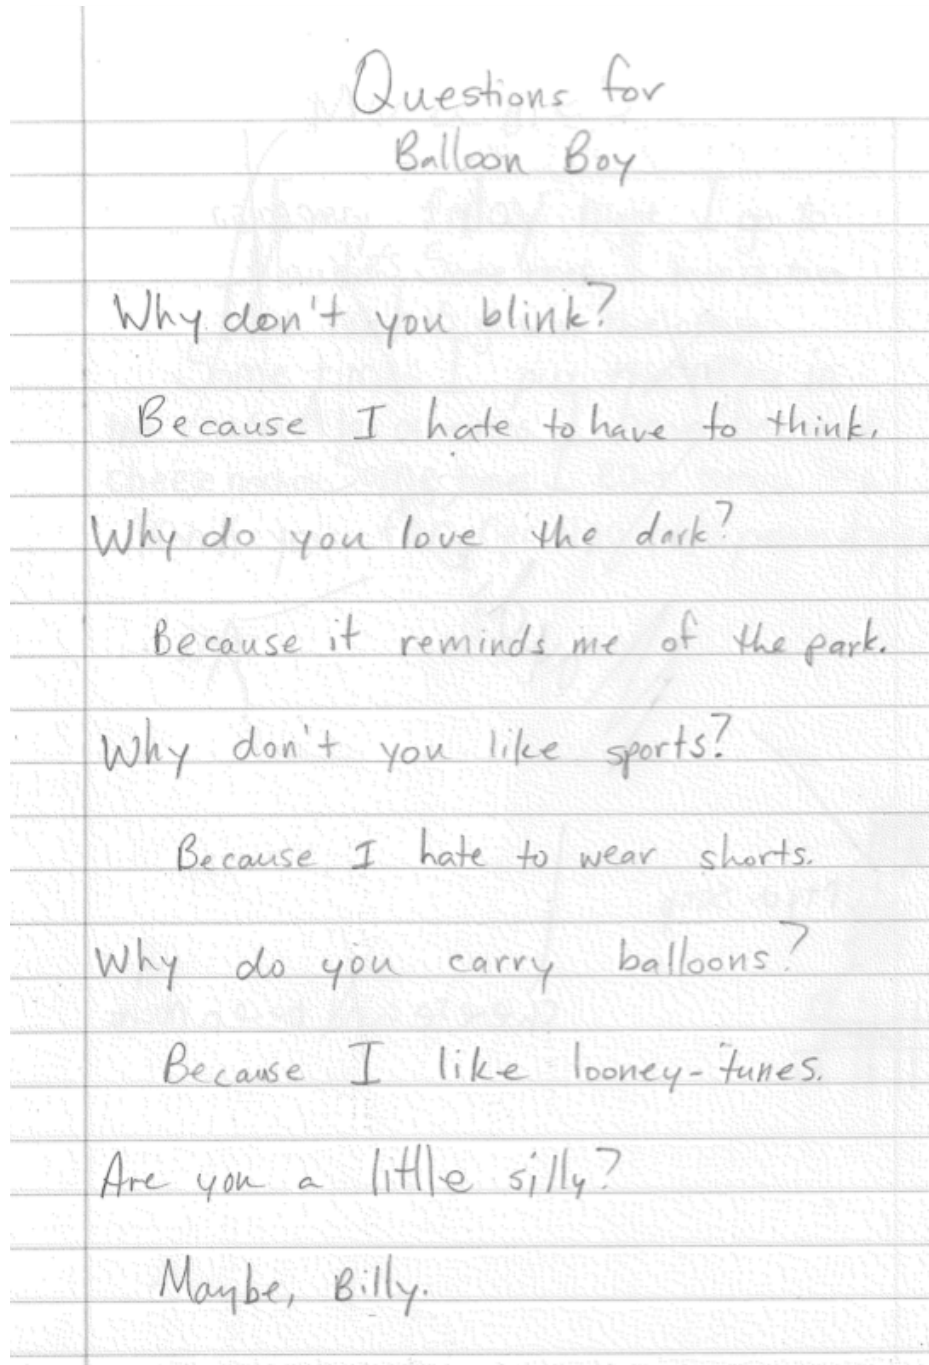 Questions for
Balloon Boy
Why don't you blink?
Because I hate to have to think.
Why do you love the dark?
Because it reminds me of the park.
Why don't you like sports?
Because I hate to wear shorts.
Why do you carry balloons?
Because I like looney-tunes.
Are you a little silly?
Maybe, Billy.